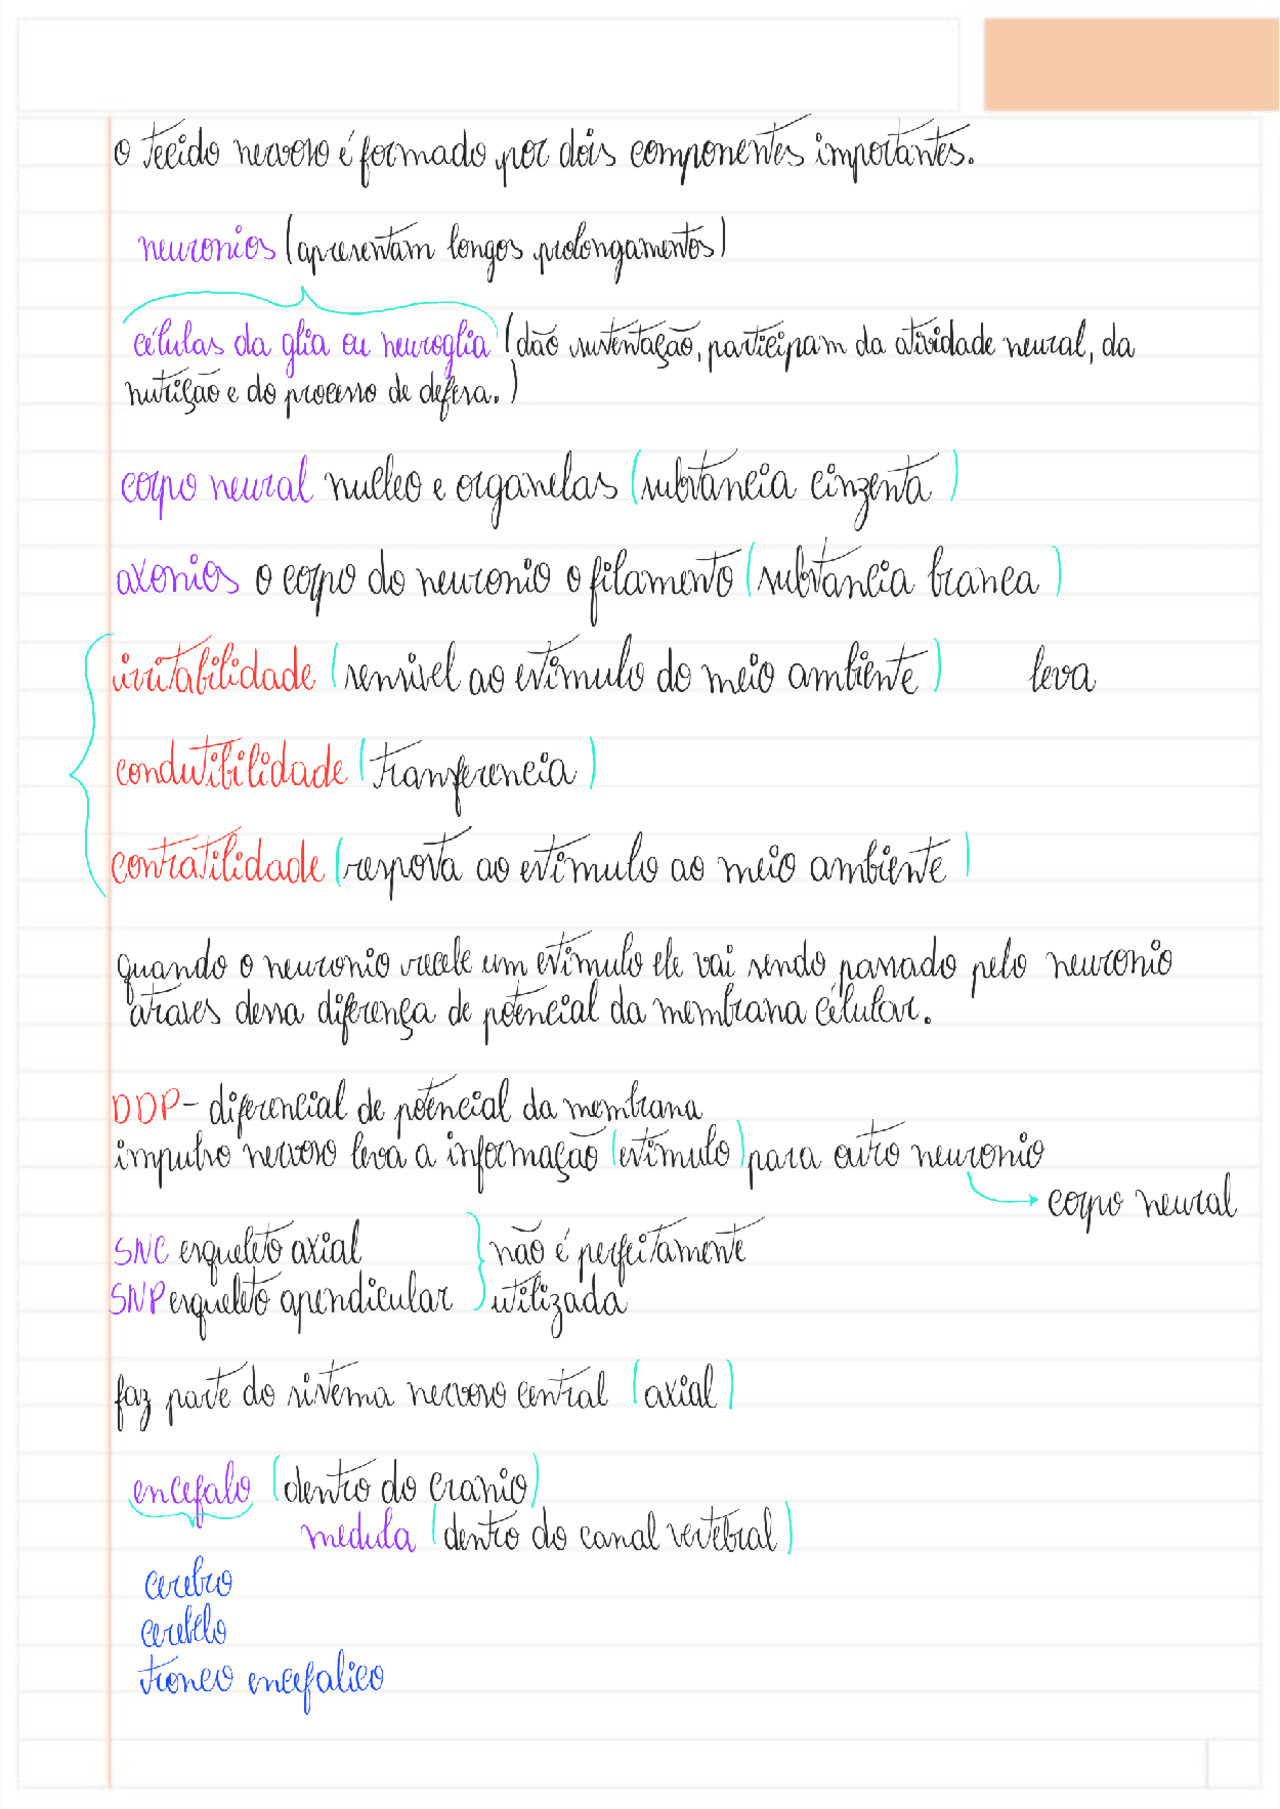 o tecido nervoso é formado por dois componentes importantes.
neuronios (apresentam longos prolongamentos)
células da glia ou neuroglia (dão sustentação, participam da atividade neural, da
nutrição e do processo de defesa.)
corpo neural nucleo e organelas (substancia cinzenta)
axonios o corpo do neuronio o filamento (substancia branca)
irritabilidade (sensivel ao estimulo do meio ambiente) leva
condutibilidade (transferencia)
contratilidade (resposta ao estimulo ao meio ambiente)
quando o neuronio recebe um estimulo ele vai sendo passado pelo neuronio
atraves dessa diferença de potencial da membrana célular.
DDP- diferencial de potencial da membrana
impulso nervoso leva a informação (estimulo) para outro neuronio
corpo neural
SNC esqueleto axial } não é perfeitamente
SNP esqueleto apendicular } utilizada
faz parte do sistema nervoso central (axial)
encefalo (dentro do cranio)
medula (dentro do canal vertebral)
cerebro
cerebelo
tronco encefalico